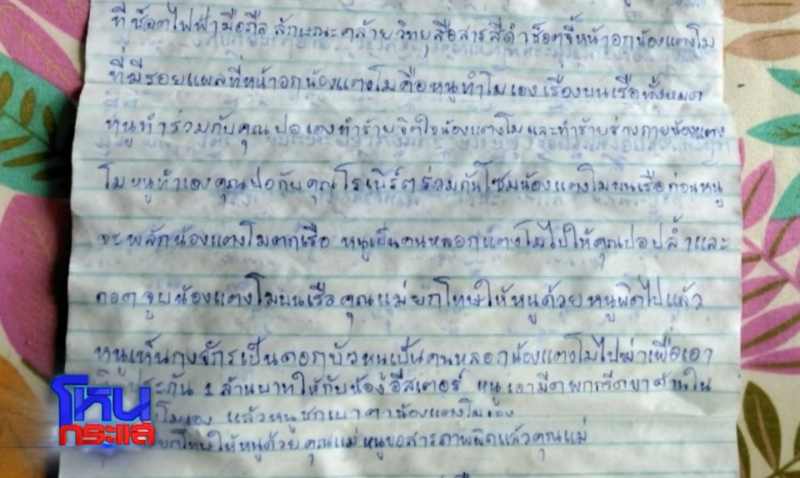 ที่ช็อตไฟฟ้ามือถือ ลักษณะคล้ายวิทยุสื่อสารสีดำช็อตจี้หน้าอกน้องแตงโม
ที่มีรอยแผลที่หน้าอกน้องแตงโมคือหนูทำโมเองเรื่องบนเรือทั้งหมด
ทำร่วมกับคุณปอ ทำร้ายจิตใจน้องแตงโมและทำร้ายร่างกายน้องแตง
โมหนูทำเองคุณปอกับคุณโรเบิร์ตร่วมกันโซมน้องแตงโมบนเรือก่อนหนู
จะพลักน้องแตงโมตกเรือ หนูเป็นคนหลอกแตงโมไปให้คุณปอปล้ำและ
กอดจูบน้องแตงโมบนเรือคุณแม่ยกโทษให้หนูด้วยหนูผิดไปแล้ว
หนูเห็นกงจักรเป็นดอกบัวหนูเป็นคนหลอกน้องแตงโมไปฆ่าเพื่อเอา
ประกัน 1 ล้านบาทให้กับน้องอีสเตอร์ หนูเอามีดพกกรีดขาด้านใน
โมเอง แล้วหนูชกเบาตาน้องแตงโมเอง
ยกโทษให้หนูด้วยคุณแม่หนูขอสารภาพผิดแล้วคุณแม่
โหนกระแส